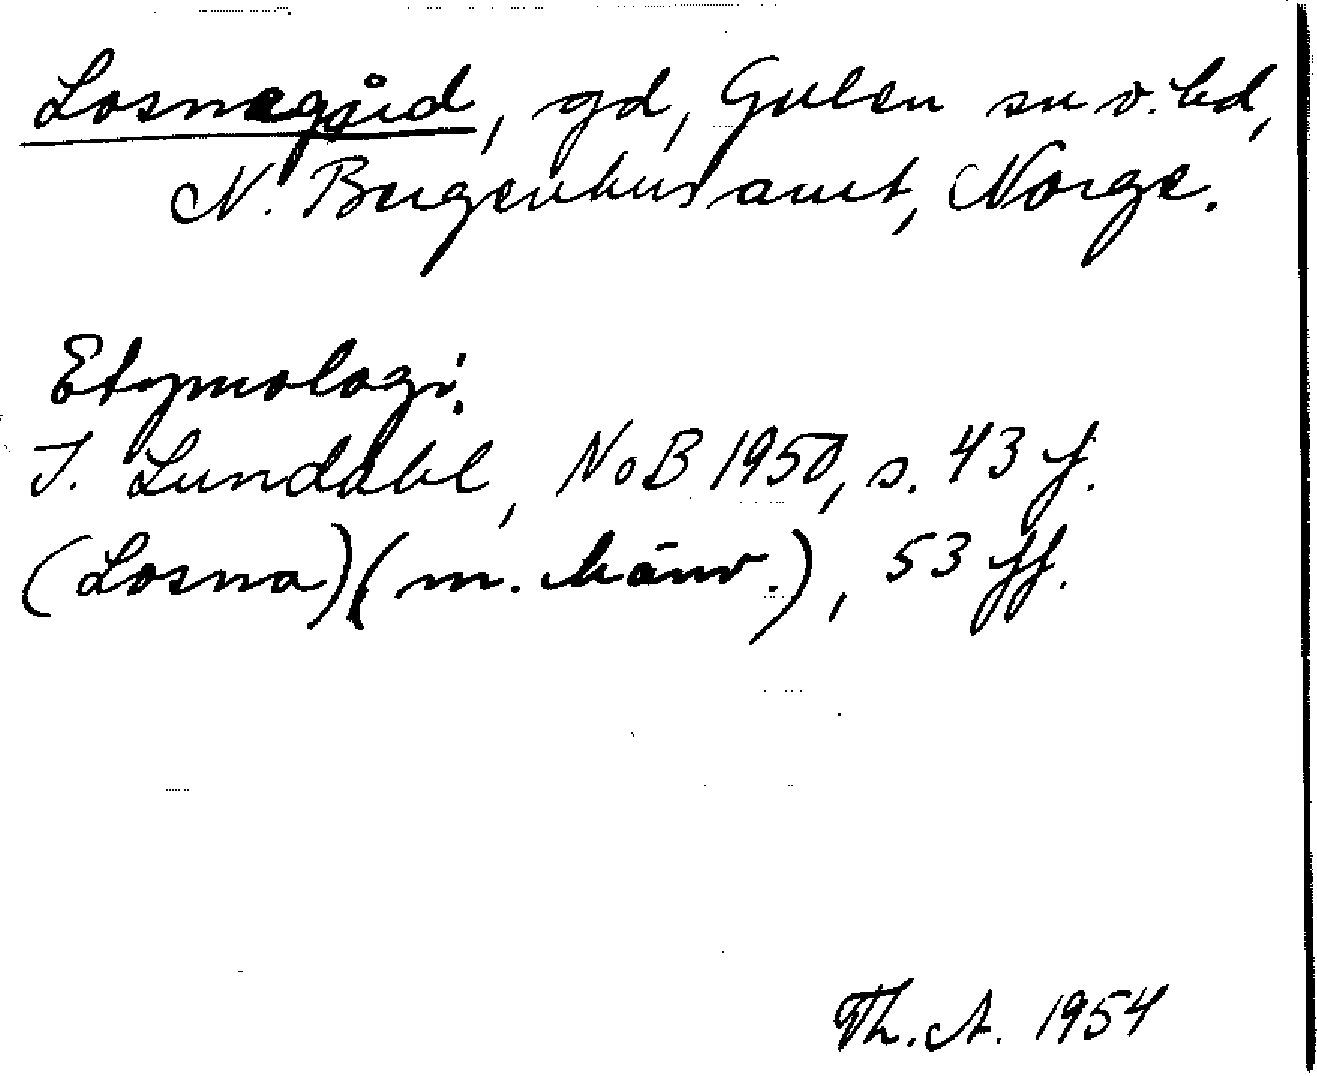 Losnegård, gd, Gulen sn o. hd,
N. Bergenhus amt, Norge.
Etymologi:
I. Lundahl, NoB 1950, s. 43 f.
(Losna) (m. hänv.), 53 ff.
Th. A. 1954